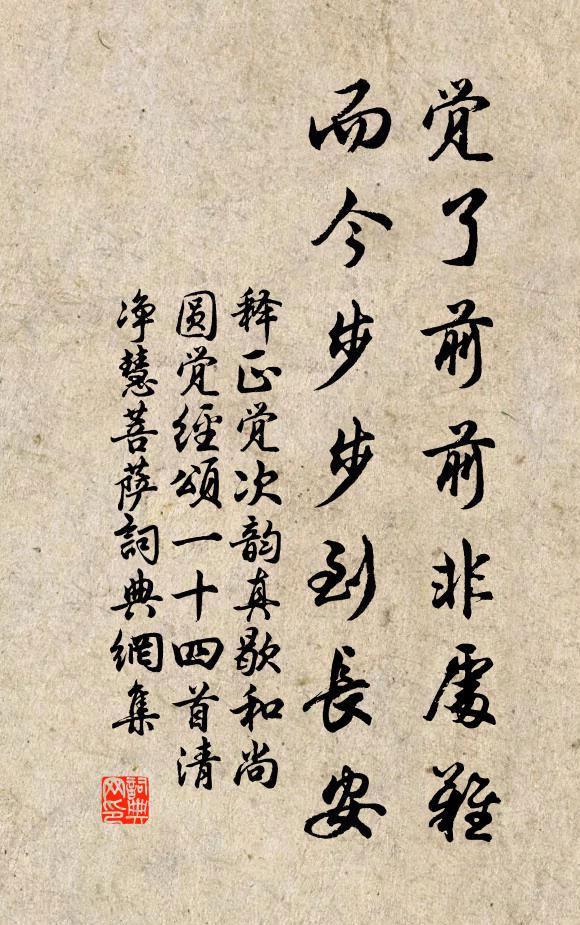 觉了前前非處難
而今步步到長安
释正觉次韵真歇和尚
圆觉經頌一十四首清
净慧菩萨詞典網集
詞典网印